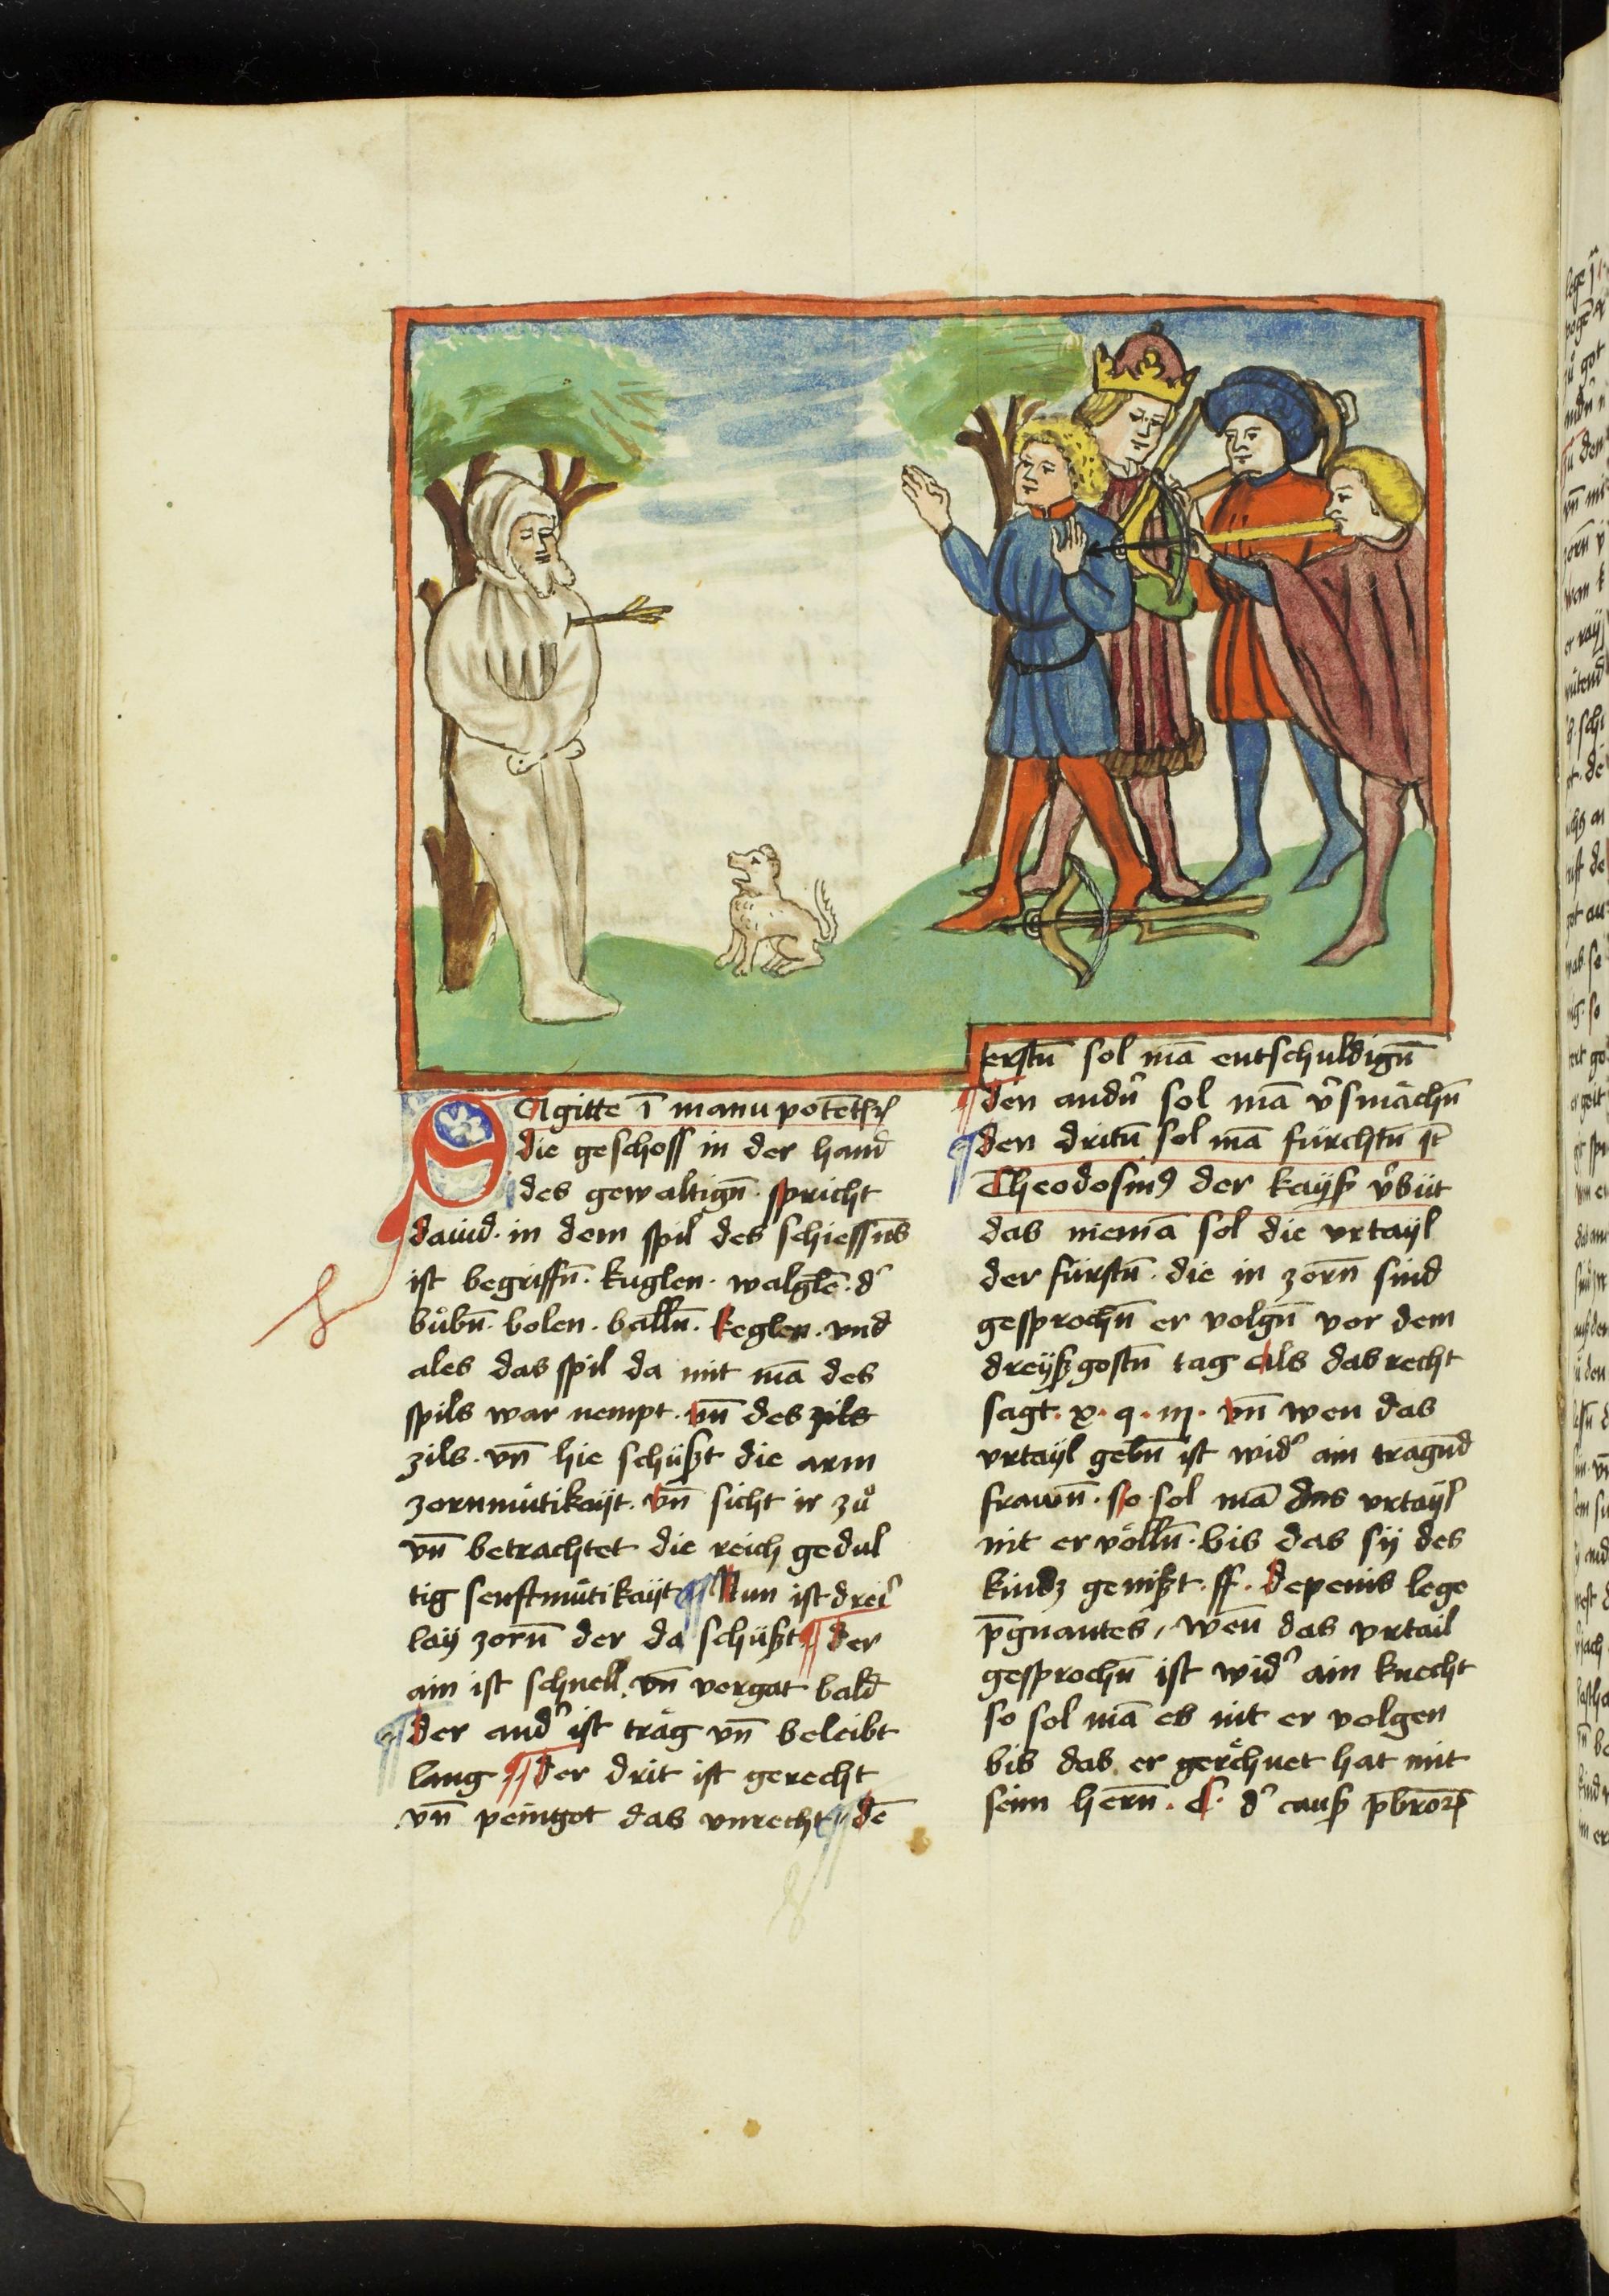 SAgitte ī manu potētis
die geschoss in der hand
des gewaltign̄ · spricht
dauid · in dem spil des schiessn̄s
ist begriffn̄ · kuglen · walglē · dˀ
bůbn̄ · bolen · balln̄ · keglen · vnd
ales das spil da mit mā des
spils war nempt · vn̄ des zils
zils · vn̄ hie schüßt die arm
zornmütikayt · vn̄ sicht ir zů
vn̄ betrachtet die reich gedul
tig senftmütikayt ¶ Nun ist dreiˀ
lay zorn̄ der da schüßt ¶ der
ain ist schnell · vn̄ vergat bald
¶ der andˀ ist träg vn̄ beleibt
lang ¶ der drit ist gerecht
vn̄ peinget das vnrecht ¶ dē
erstn̄ sol mā entschuldign̄
¶ den andn̄ sol mā v̄smächn̄
¶ den dritn̄ sol mā fürchtn̄
Theodosiuꝰ der kayß v̄büt
das niemā sol die vrtayl
der fürstn̄ · die in zorn̄ sind
gesprochn̄ er volgn̄ vor dem
dreyßgostn̄ tag als das recht
sagt · x · q · iij · vn̄ wen das
vrtayl gebn̄ ist widˀ ain tragnd
frawn̄ · so sol mā das vrtayl
nit er völln̄ · bis das sy des
kindz genißt · ff · depenis lege
p̄gnantes / wen̄ das vrtail
gesprochn̄ ist widˀ ain knecht
so sol mā es nit er volgen
bis das er gerëchnet hat mit
seim hern̄ · C · dˀ